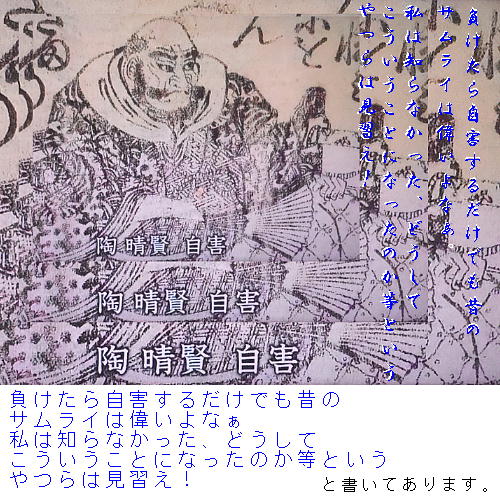 負けたら自害するだけでも昔の
サムライは偉いよなぁ
私は知らなかった、どうして
こういうことになったのか等という
やつらは見習え！
陶 晴賢 自害
陶 晴賢 自害
陶 晴賢 自害
負けたら自害するだけでも昔の
サムライは偉いよなぁ
私は知らなかった、どうして
こういうことになったのか等という
やつらは見習え！
と書いてあります。